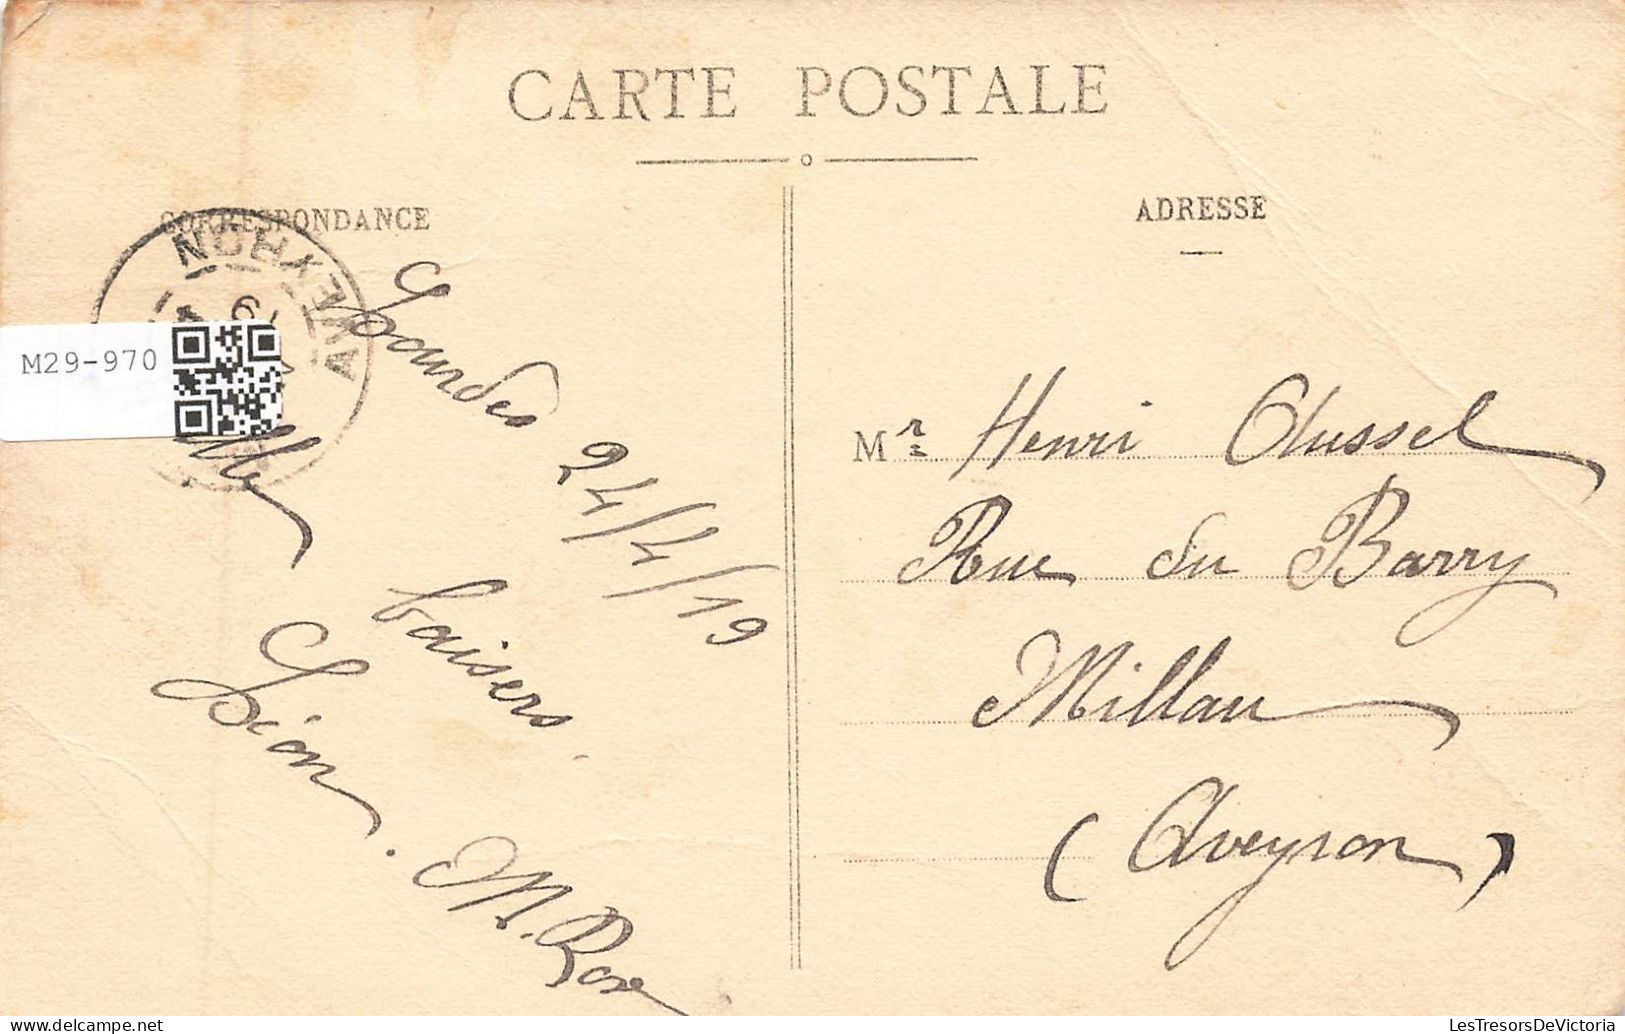 CARTE POSTALE
CORRESPONDANCE
ADRESSE
AVEYRON
19
M29-970
Lourdes 24/4/19
baisers.
Léon. M. Rose
Mr Henri Aussel
Rue du Barry
Millau
(Aveyron)
LesTresorsDeVictoria